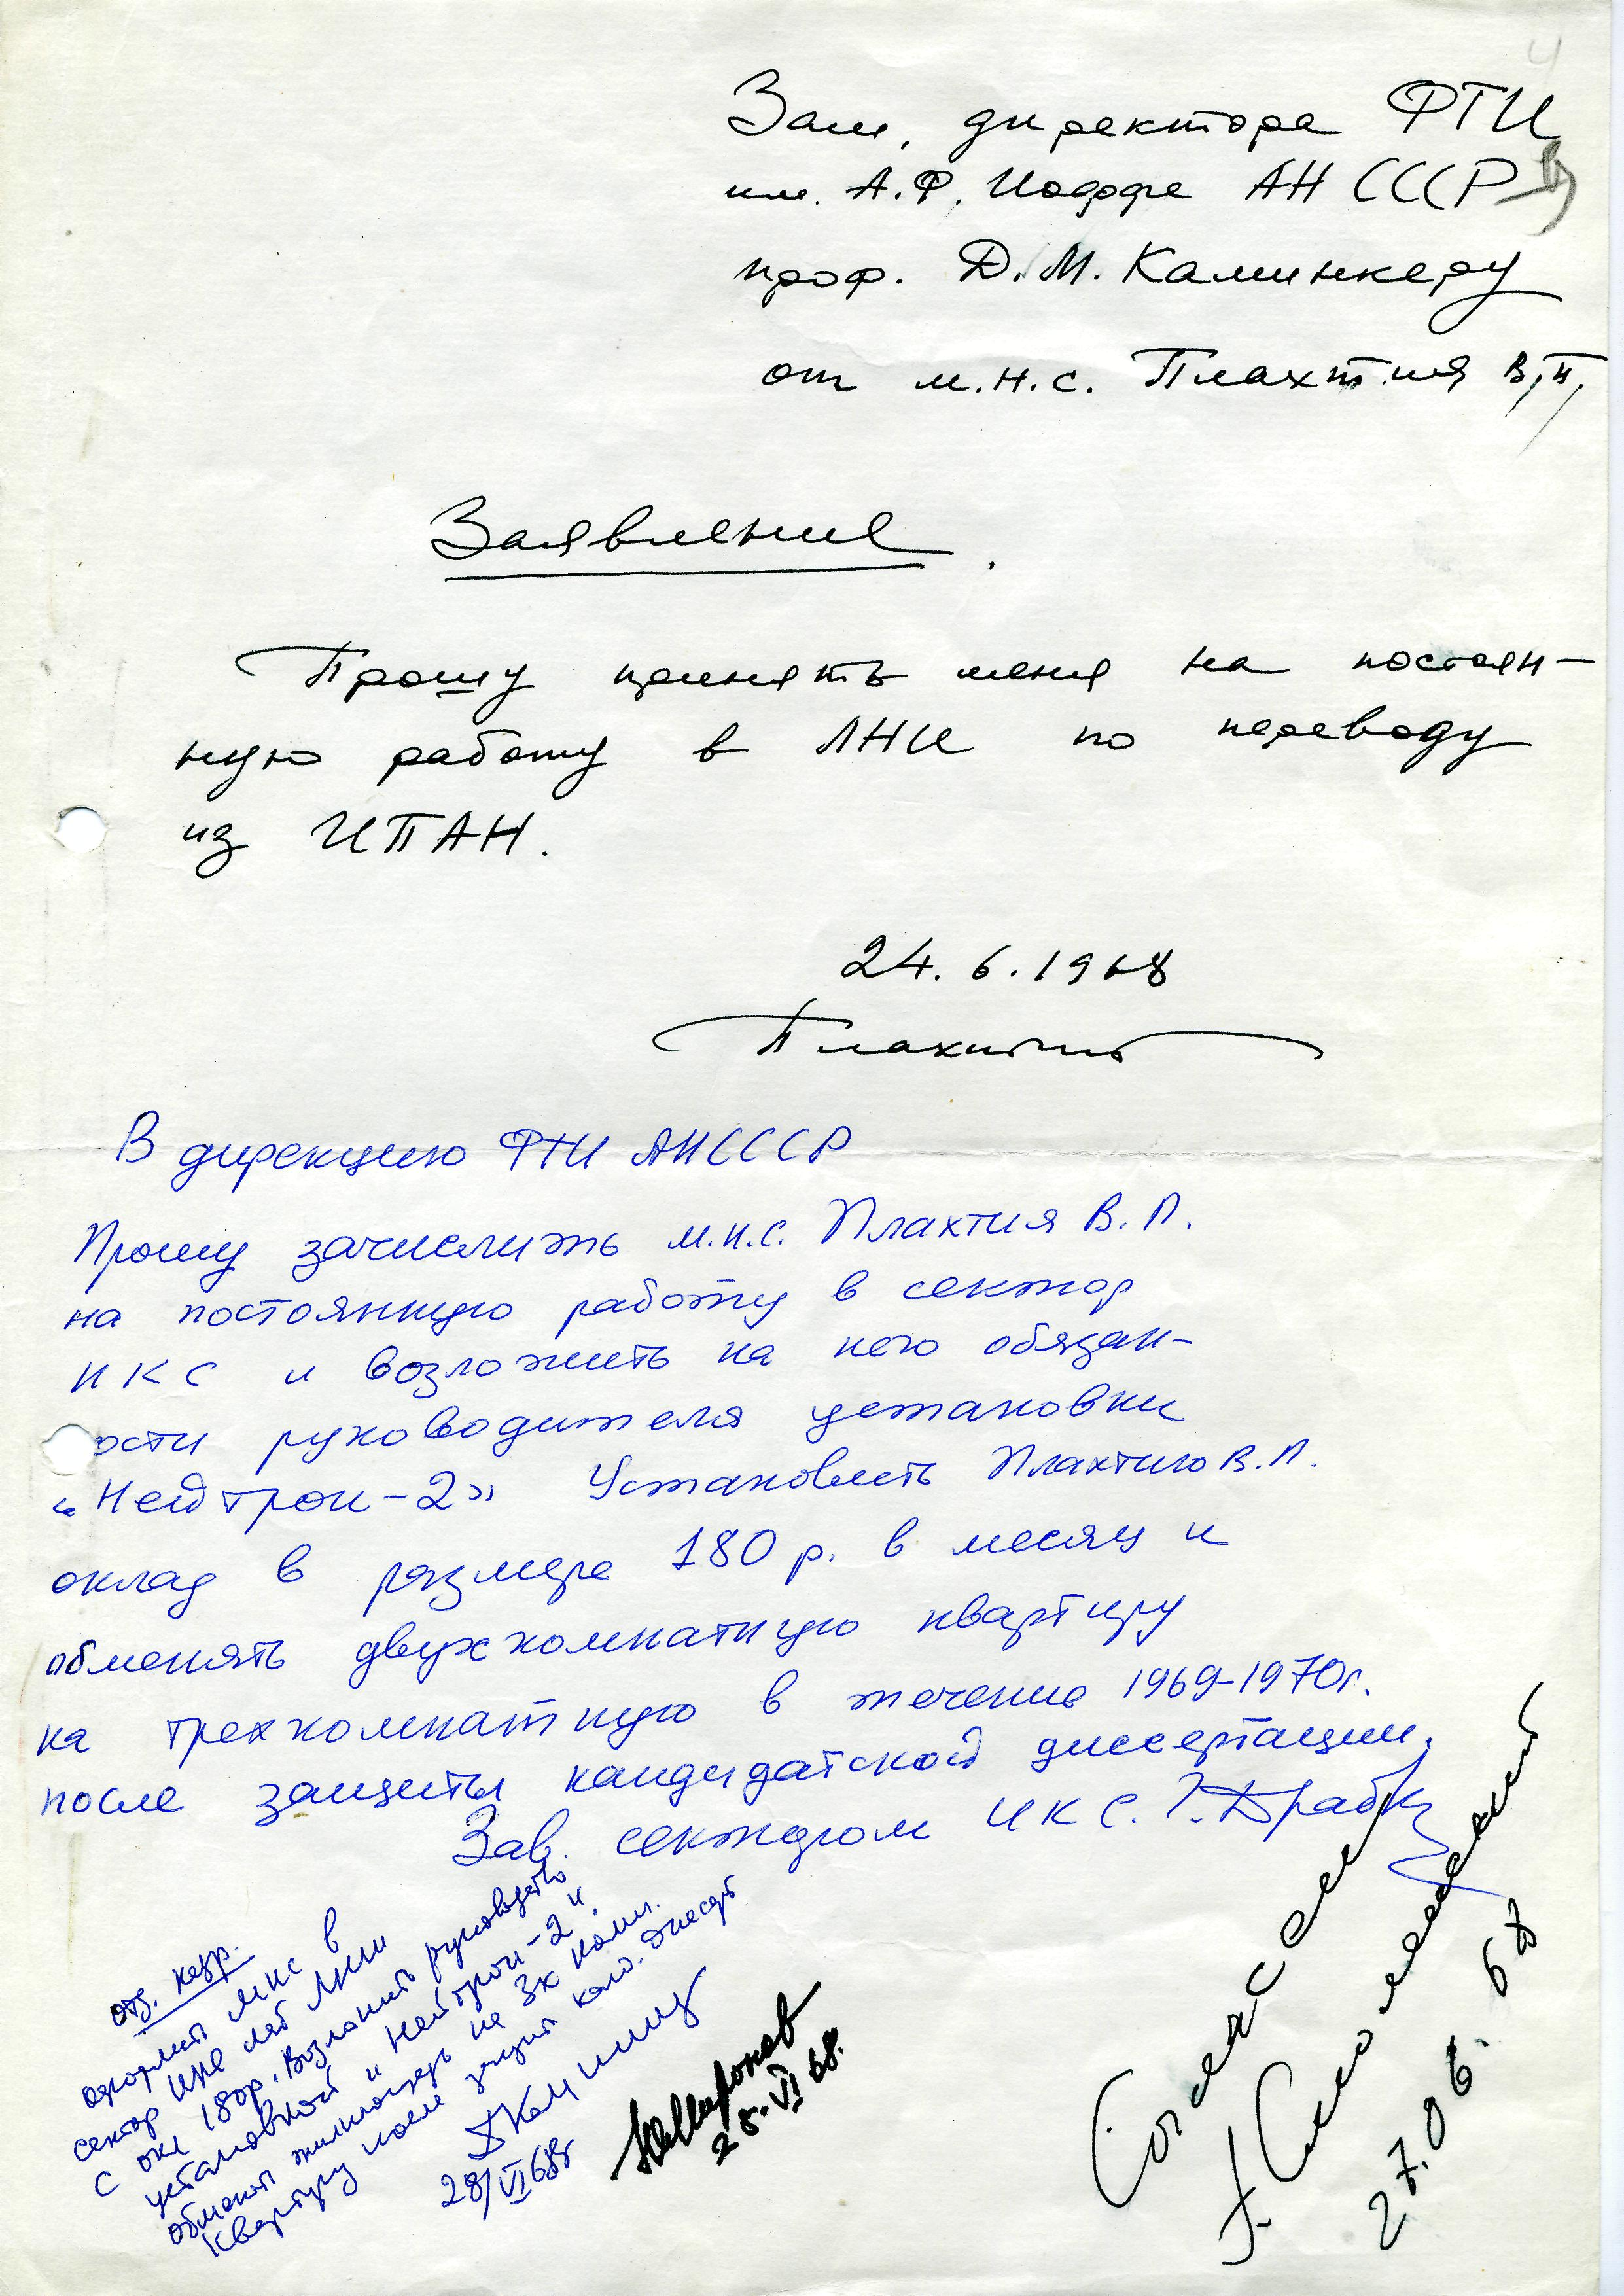 4
Зам. директора ФТИ
им. А.Ф. Иоффе АН СССР
проф. Д.М. Каминкеру
от м.н.с. Плахтия В.П.
Заявление.
Прошу принять меня на постоян-
ную работу в ЛНИ по переводу
из ИПАН.
24.6.1968
Плахтий
В дирекцию ФТИ АН СССР
Прошу зачислить м.н.с. Плахтия В.П.
на постоянную работу в сектор
ИКС и возложить на него обязан-
ости руководителя установки
«Нейтрон-2» Установить Плахтию В.П.
оклад в размере 180 р. в месяц и
обменять двухкомнатную квартиру
на трехкомнатную в течение 1969-1970г.
после защиты кандидатской диссертации.
Зав. сектором ИКС. Г. Драбк
отд. кадр.
оформить мнс в
сектор ИКС лаб ЛНИ
с окл 180р. Возложить руководство
установкой "Нейтрон-2".
обменять жилплощадь на 3х комн.
квартиру после защит канд. диссерт
28/VI 68г
28.VI 68.
Согласен
27.06.68